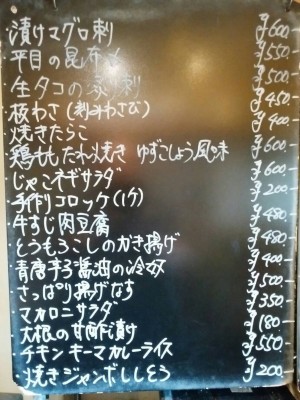 ・漬けマグロ刺 ¥600.
・平目の昆布〆 ¥550.
・生タコの薄刺 ¥500.
・板わさ(刻みわさび) ¥450.
・焼きたらこ ¥400.
・鶏ももたれ焼き ゆずこしょう風味 ¥600.
・じゃこネギサラダ ¥600.
・手作りコロッケ(1ケ) ¥200.
・牛すじ肉豆腐 ¥480.
・とうもろこしのかき揚げ ¥480.
・青唐辛子醤油の冷奴 ¥400.
・さっぱり揚げなす ¥500.
・マカロニサラダ ¥350.
・大根の甘酢漬け ¥180.
・チキンキーマカレーライス ¥550.
・焼きジャンボししとう ¥200.